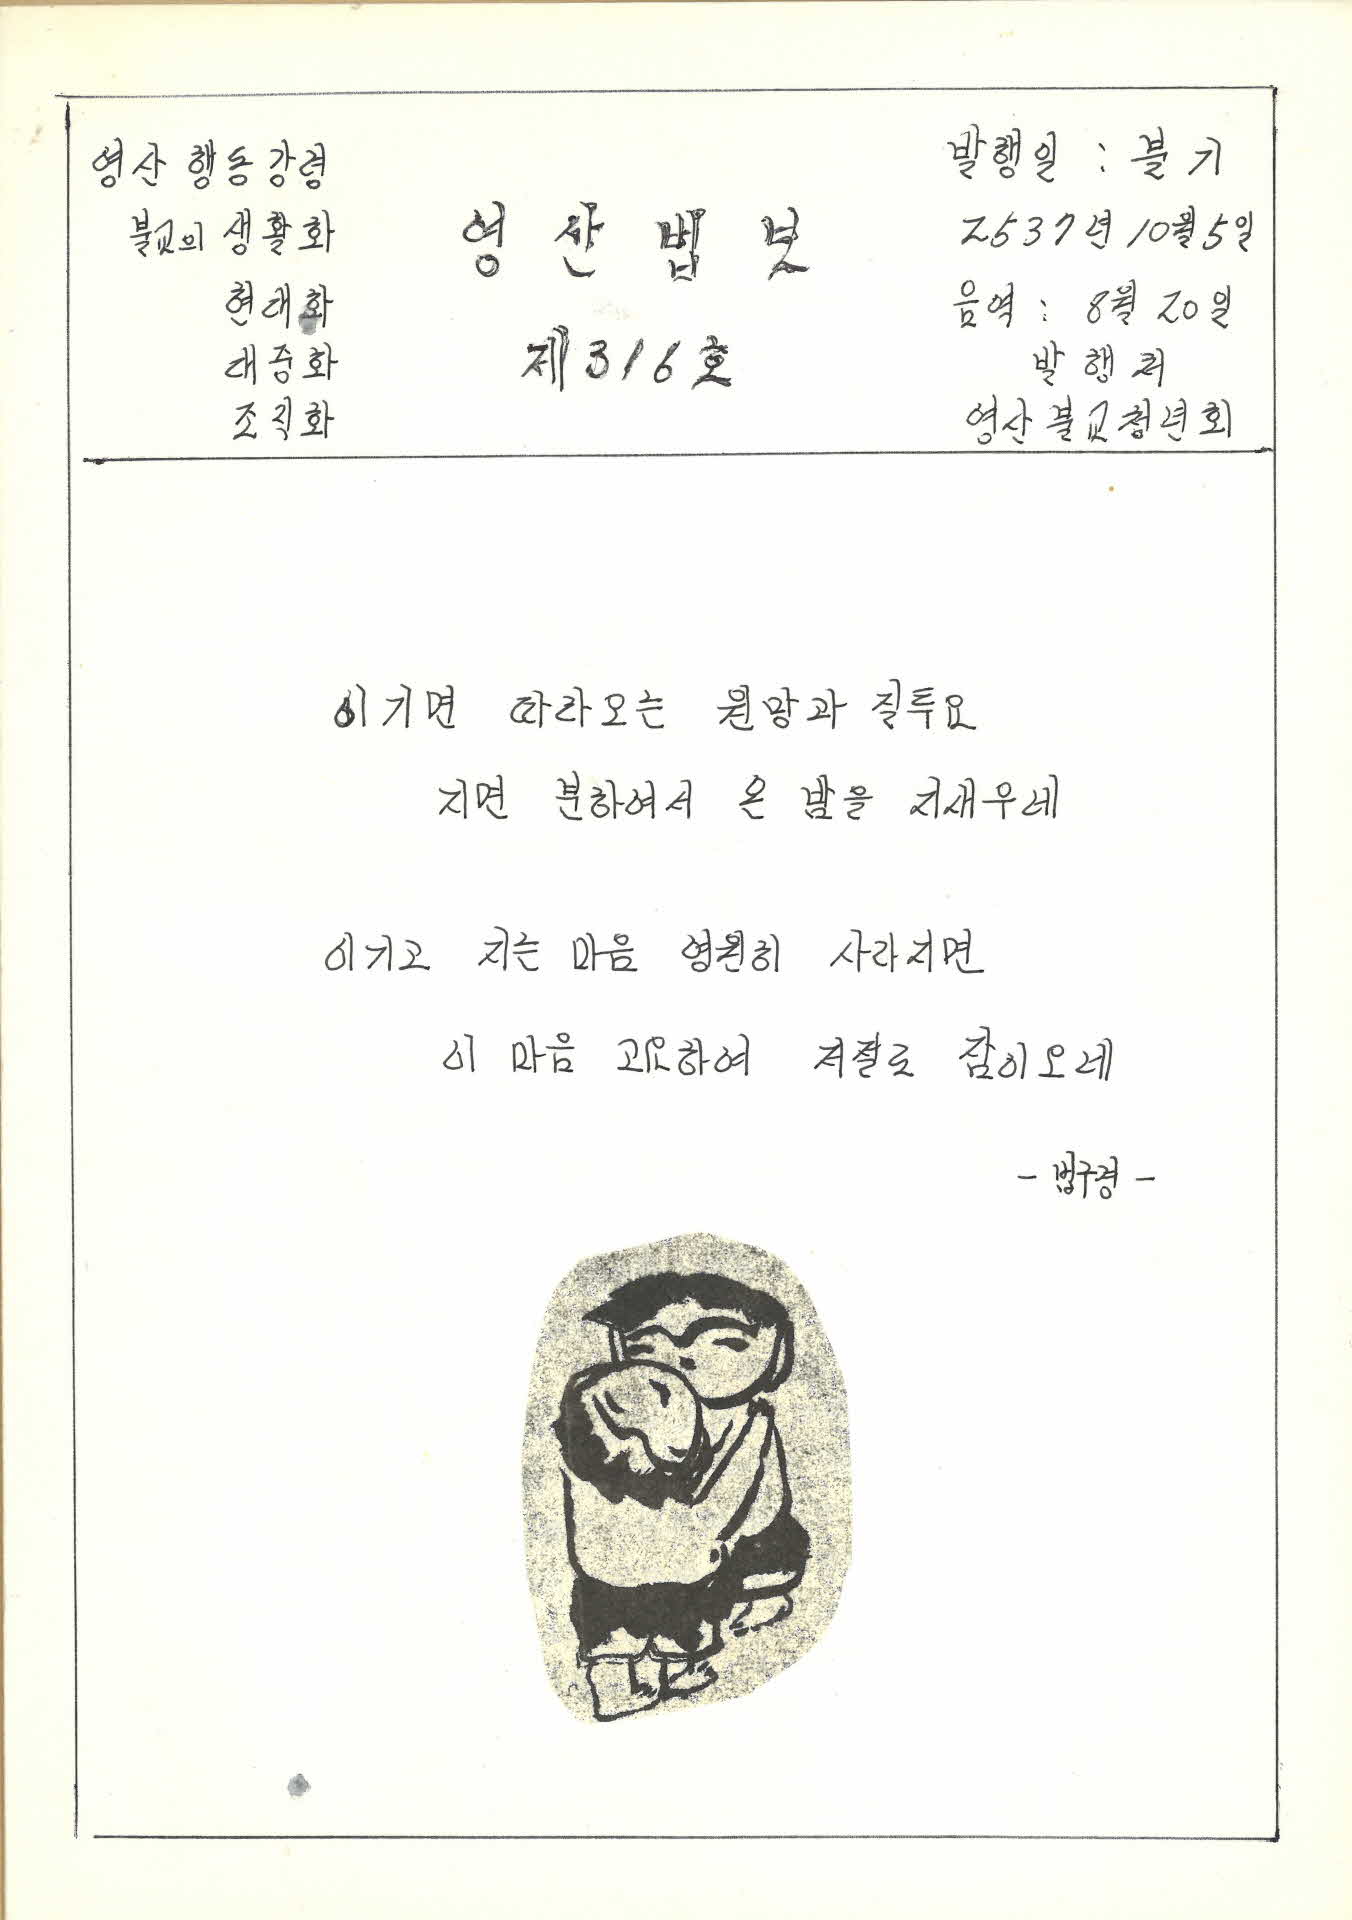 영산 행동강령
불교의 생활화
현대화
대중화
조직화
영산법보
제316호
발행일 : 불기
2537년 10월 5일
음력 : 8월 20일
발행처
영산불교청년회
이기면 따라오는 원망과 질투요
지면 분하여서 온 밤을 지새우네
이기고 지는 마음 영원히 사라지면
이 마음 고요하여 저절로 잠이오네
- 법구경 -